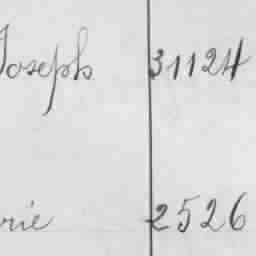 Joseph 31124
rie 2526